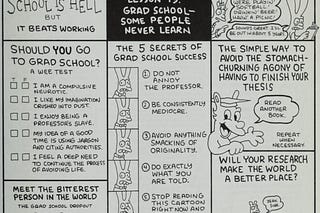 SCHOOL IS HELL
BUT
IT BEATS WORKING
LESSON 19:
GRAD SCHOOL—
SOME PEOPLE
NEVER LEARN
WE'RE PLAYIN'
SOFTBALL,
DRINKIN' BEER,
HAVE A PICNIC!
SHOULD YOU GO
TO GRAD SCHOOL?
A WEE TEST
T F
I AM A COMPULSIVE
NEUROTIC.
I LIKE MY IMAGINATION
CRUSHED INTO DUST.
I ENJOY BEING A
PROFESSOR'S SLAVE.
MY IDEA OF A GOOD
TIME IS USING JARGON
AND CITING AUTHORITIES.
I FEEL A DEEP NEED
TO CONTINUE THE PROCESS
OF AVOIDING LIFE.
MEET THE BITTEREST
PERSON IN THE WORLD
THE GRAD SCHOOL DROPOUT
THE 5 SECRETS OF
GRAD SCHOOL SUCCESS
① DO NOT
ANNOY
THE PROFESSOR.
② BE CONSISTENTLY
MEDIOCRE.
③ AVOID ANYTHING
SMACKING OF
ORIGINALITY.
④ DO EXACTLY
WHAT YOU
ARE TOLD.
⑤ STOP READING
THIS CARTOON
RIGHT NOW AND
THE SIMPLE WAY TO
AVOID THE STOMACH-
CHURNING AGONY OF
HAVING TO FINISH YOUR
THESIS
READ
ANOTHER
BOOK.
REPEAT
WHEN
NECESSARY.
WILL YOUR RESEARCH
MAKE THE WORLD
A BETTER PLACE?